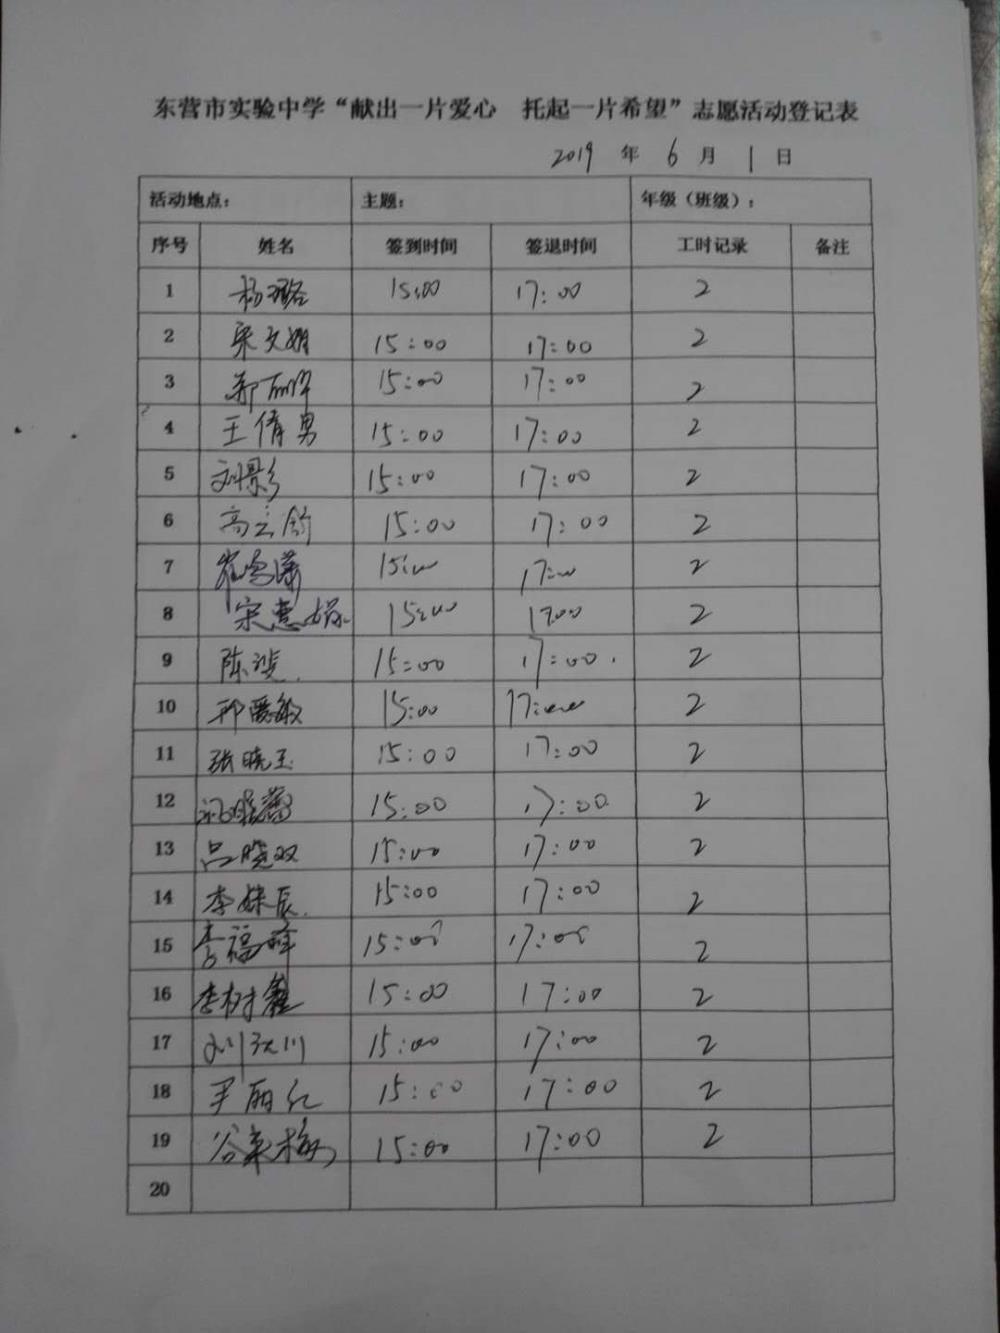 东营市实验中学“献出一片爱心 托起一片希望”志愿活动登记表
2019 年 6 月 1 日
活动地点： 主题： 年级（班级）：
序号 姓名 签到时间 签退时间 工时记录 备注
1 15:00 17:00 2
2 宋文娟 15:00 17:00 2
3 15:00 17:00 2
4 王倩男 15:00 17:00 2
5 刘影 15:00 17:00 2
6 高云舒 15:00 17:00 2
7 15:00 17:00 2
8 宋慧娟 15:00 17:00 2
9 15:00 17:00 2
10 15:00 17:00 2
11 张晓玉 15:00 17:00 2
12 15:00 17:00 2
13 吕晓双 15:00 17:00 2
14 15:00 17:00 2
15 李福峰 15:00 17:00 2
16 李树鑫 15:00 17:00 2
17 15:00 17:00 2
18 尹丽红 15:00 17:00 2
19 15:00 17:00 2
20